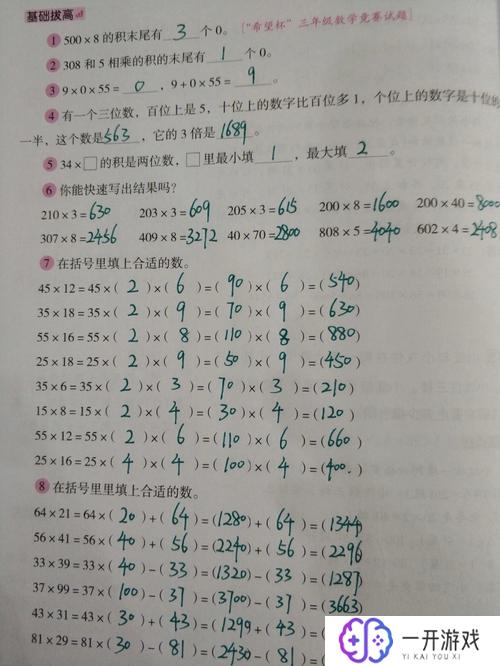 基础拔高
["希望杯"三年级数学竞赛试题]
1 500×8的积末尾有 3 个0。
2 308和5相乘的积的末尾有 1 个0。
3 9×0×55= 0 ，9+0×55= 9 。
4 有一个三位数，百位上是5，十位上的数字比百位多1，个位上的数字是十位的
一半，这个数是563，它的3倍是1689。
5 34×□的积是两位数，□里最小填 1 ，最大填 2 。
6 你能快速写出结果吗？
210×3=630 203×3=609 205×3=615 200×8=1600 200×40=8000
307×8=2456 409×8=3272 40×70=2800 808×5=4040 602×4=2408
7 在括号里填上合适的数。
45×12=45×(2)×(6)=(90)×(6)=(540)
35×18=35×(2)×(9)=(70)×(9)=(630)
55×16=55×(2)×(8)=(110)×(8)=(880)
25×18=25×(2)×(9)=(50)×(9)=(450)
35×6=35×(2)×(3)=(70)×(3)=(210)
15×8=15×(2)×(4)=(30)×(4)=(120)
55×12=55×(2)×(6)=(110)×(6)=(660)
25×16=25×(4)×(4)=(100)×(4)=(400)
8 在括号里里填上合适的数。
64×21=64×(20)+(64)=(1280)+(64)=(1344)
56×41=56×(40)+(56)=(2240)+(56)=(2296
33×39=33×(40)-(33)=(1320)-(33)=(1287
37×99=37×(100)-(37)=(3700)-(37)=(3663)
43×31=43×(30)+(43)=(1299)+(43)=(
81×29=81×(30)-(81)=(2430)-(81)=
一开游戏
YI KAI YOU XI